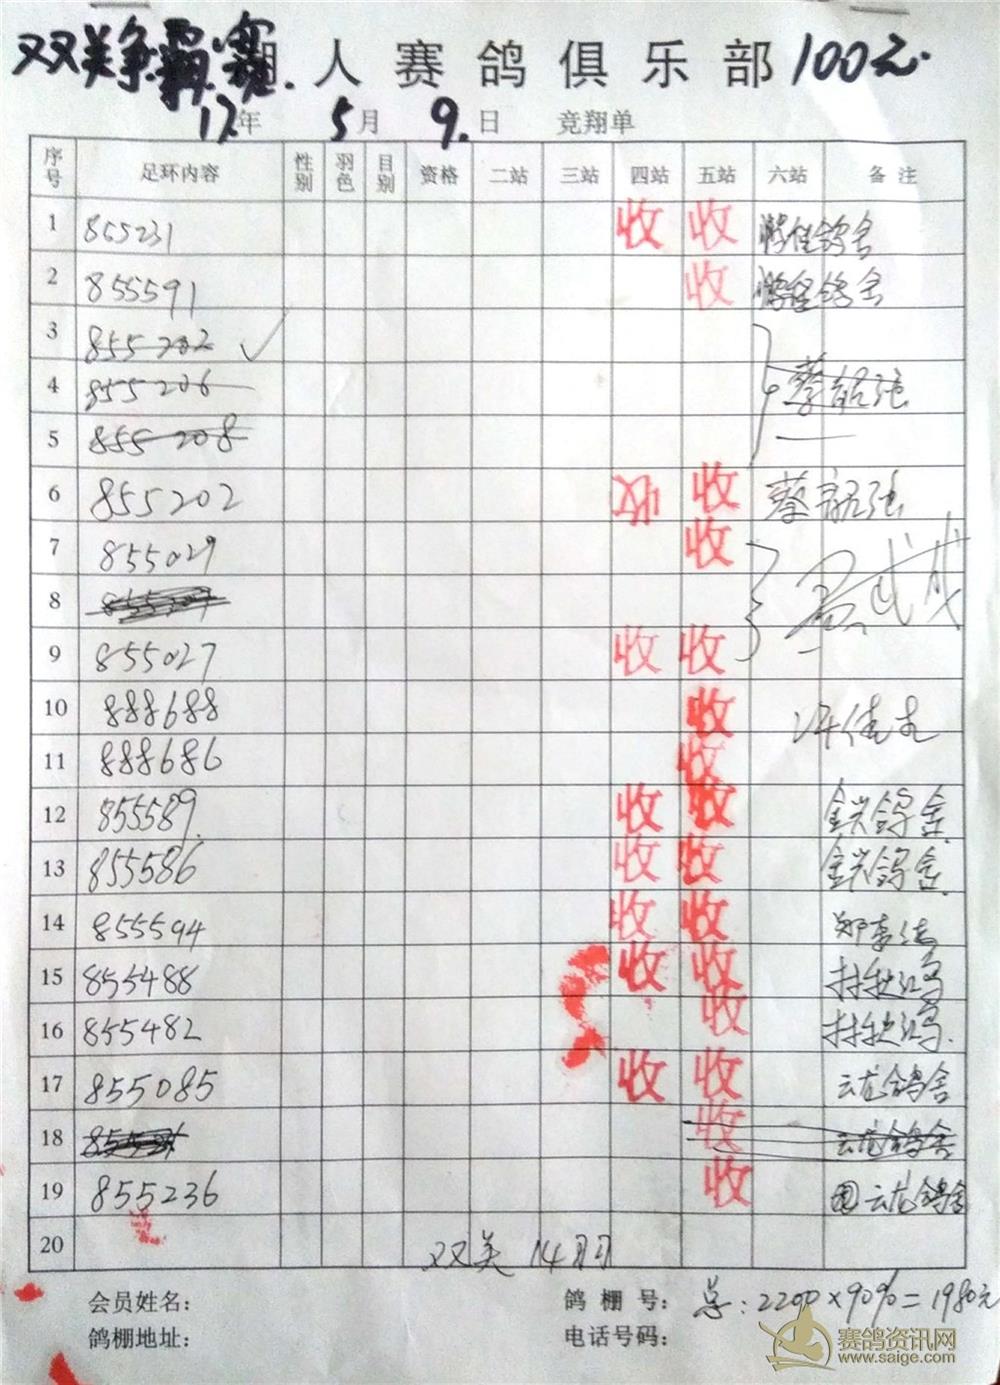 双关争霸赛 人赛鸽俱乐部 100元.
17年 5月 9.日 竞翔单
序号 足环内容 性别 羽色 目别 资格 二站 三站 四站 五站 六站 备注
1 855231 收 收 鸽舍
2 855591 收 鸽舍
3 855202
4 855206 蔡
5 855208
6 855202 收 收 蔡
7 855029 收
8
9 855027 收 收
10 888688 收
11 888686 收
12 855589. 收 收 金兴鸽舍
13 855586 收 收 金兴鸽舍
14 855594 收 收 郑
15 855488 收 收
16 855482 收
17 855085 收 收 云龙鸽舍
18 收 云龙鸽舍
19 855236 收 云龙鸽舍
20 双关 14羽
会员姓名： 鸽棚号： 总：2200×90%=1980元
鸽棚地址： 电话号码：
赛鸽资讯网
www.saige.com